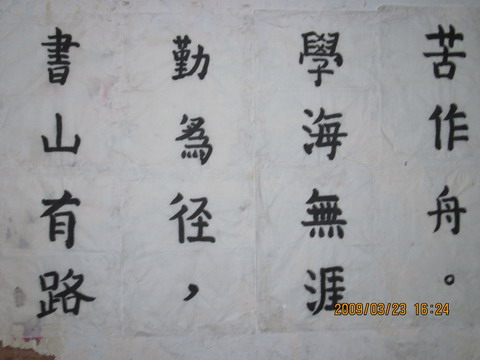 書山有路
勤為径，
學海無涯
苦作舟。
2009/03/23 16:24